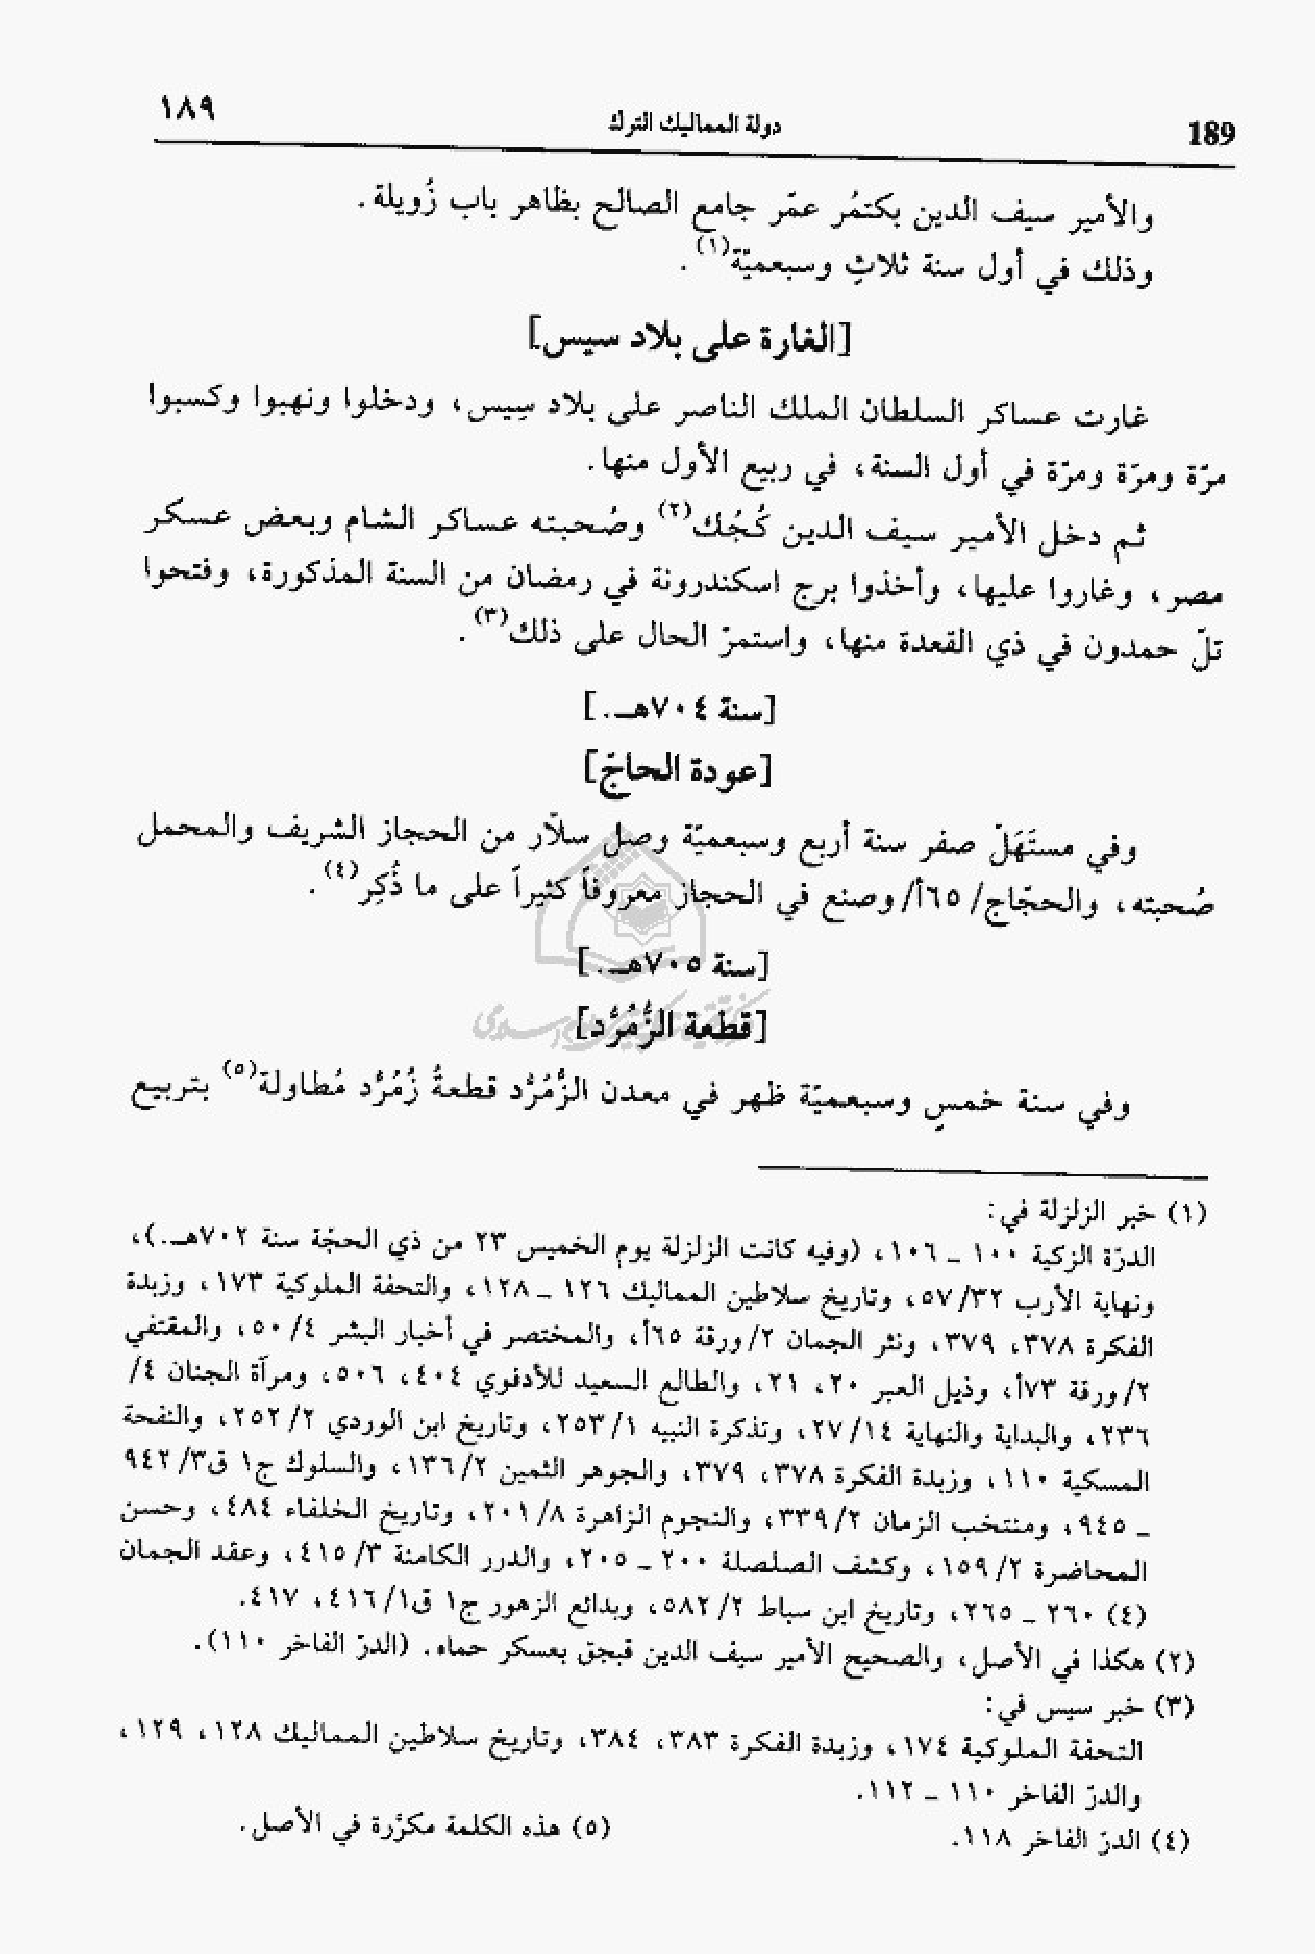 189 دولة المماليك الترك ١٨٩
والأمير سيف الدين بكتمُر عمّر جامع الصالح بظاهر باب زُويلة.
وذلك في أول سنة ثلاثٍ وسبعميّة(١).
[الغارة على بلاد سيس]
غارت عساكر السلطان الملك الناصر على بلاد سِيس، ودخلوا ونهبوا وكسبوا
مرّة ومرّة ومرّة في أول السنة، في ربيع الأول منها.
ثم دخل الأمير سيف الدين كُجُك(٢) وصُحبته عساكر الشام وبعض عسكر
مصر، وغاروا عليها، وأخذوا برج اسكندرونة في رمضان من السنة المذكورة، وفتحوا
تلّ حمدون في ذي القعدة منها، واستمرّ الحال على ذلك(٣).
[سنة ٧٠٤هـ.]
[عودة الحاجّ]
وفي مستَهَلّ صفر سنة أربع وسبعميّة وصل سلاّر من الحجاز الشريف والمحمل
صُحبته، والحجّاج/ ٦٥أ/ وصنع في الحجاز معروفاً كثيراً على ما ذُكِر(٤).
[سنة ٧٠٥هـ.]
[قطعة الزُّمُرُّد]
وفي سنة خمسٍ وسبعميّة ظهر في معدن الزُّمُرُّد قطعةُ زُمُرُّد مُطاولة(٥) بتربيع
(١) خبر الزلزلة في:
الدرّة الزكية ١٠٠ _ ١٠٦، (وفيه كانت الزلزلة يوم الخميس ٢٣ من ذي الحجّة سنة ٧٠٢هـ.)،
ونهاية الأرب ٥٧/٣٢، وتاريخ سلاطين المماليك ١٢٦ _ ١٢٨، والتحفة الملوكية ١٧٣، وزبدة
الفكرة ٣٧٨، ٣٧٩، ونثر الجمان ٢/ ورقة ٦٥أ، والمختصر في أخبار البشر ٤/ ٥٠، والمقتفي
٢/ ورقة ٧٣أ، وذيل العبر ٢٠، ٢١، والطالع السعيد للأدفوي ٤٠٤، ٥٠٦، ومرآة الجنان ٤/
٢٣٦، والبداية والنهاية ١٤/ ٢٧، وتذكرة النبيه ١/ ٢٥٣، وتاريخ ابن الوردي ٢/ ٢٥٢، والنفحة
المسكية ١١٠، وزبدة الفكرة ٣٧٨، ٣٧٩، والجوهر الثمين ٢/ ١٣٦، والسلوك ج١ ق٣/ ٩٤٢
_ ٩٤٥، ومنتخب الزمان ٢/ ٣٣٩، والنجوم الزاهرة ٨/ ٢٠١، وتاريخ الخلفاء ٤٨٤، وحسن
المحاضرة ٢/ ١٥٩، وكشف الصلصلة ٢٠٠ _ ٢٠٥، والدرر الكامنة ٣/ ٤١٥، وعقد الجمان
(٤) ٢٦٠ _ ٢٦٥، وتاريخ ابن سباط ٢/ ٥٨٢، وبدائع الزهور ج١ ق١/ ٤١٦، ٤١٧.
(٢) هكذا في الأصل، والصحيح الأمير سيف الدين قبجق بعسكر حماه. (الدرّ الفاخر ١١٠).
(٣) خبر سيس في:
التحفة الملوكية ١٧٤، وزبدة الفكرة ٣٨٣، ٣٨٤، وتاريخ سلاطين المماليك ١٢٨، ١٢٩،
والدرّ الفاخر ١١٠ _ ١١٢.
(٤) الدرّ الفاخر ١١٨.
(٥) هذه الكلمة مكرّرة في الأصل.